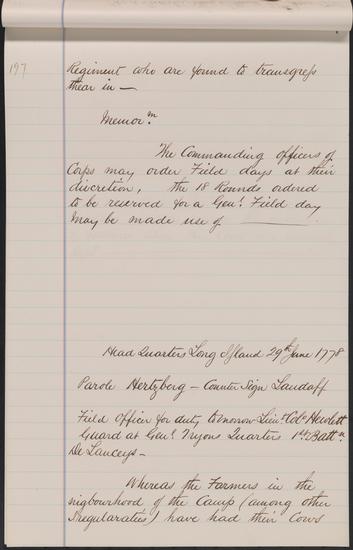 197
Regiment who are found to transgress
thear in —
Memorm.
The Commanding officers of
Corps may order Field days at their
discretion, the 18 Rounds ordered
to be reserved for a Genl. Field day
May be made use of
Head Quarters Long Island 29th June 1778
Parole Hertzberg — Counter Sign Landaff
Field Officer for duty tomorrow Lieut. Colo. Hewlett
Guard at Genl. Tryons Quarters 1st. Battn.
De Lanceys —
Whereas the Farmers in the
nigbourhood of the Camp (among other
Irregularaties) have had their Cows